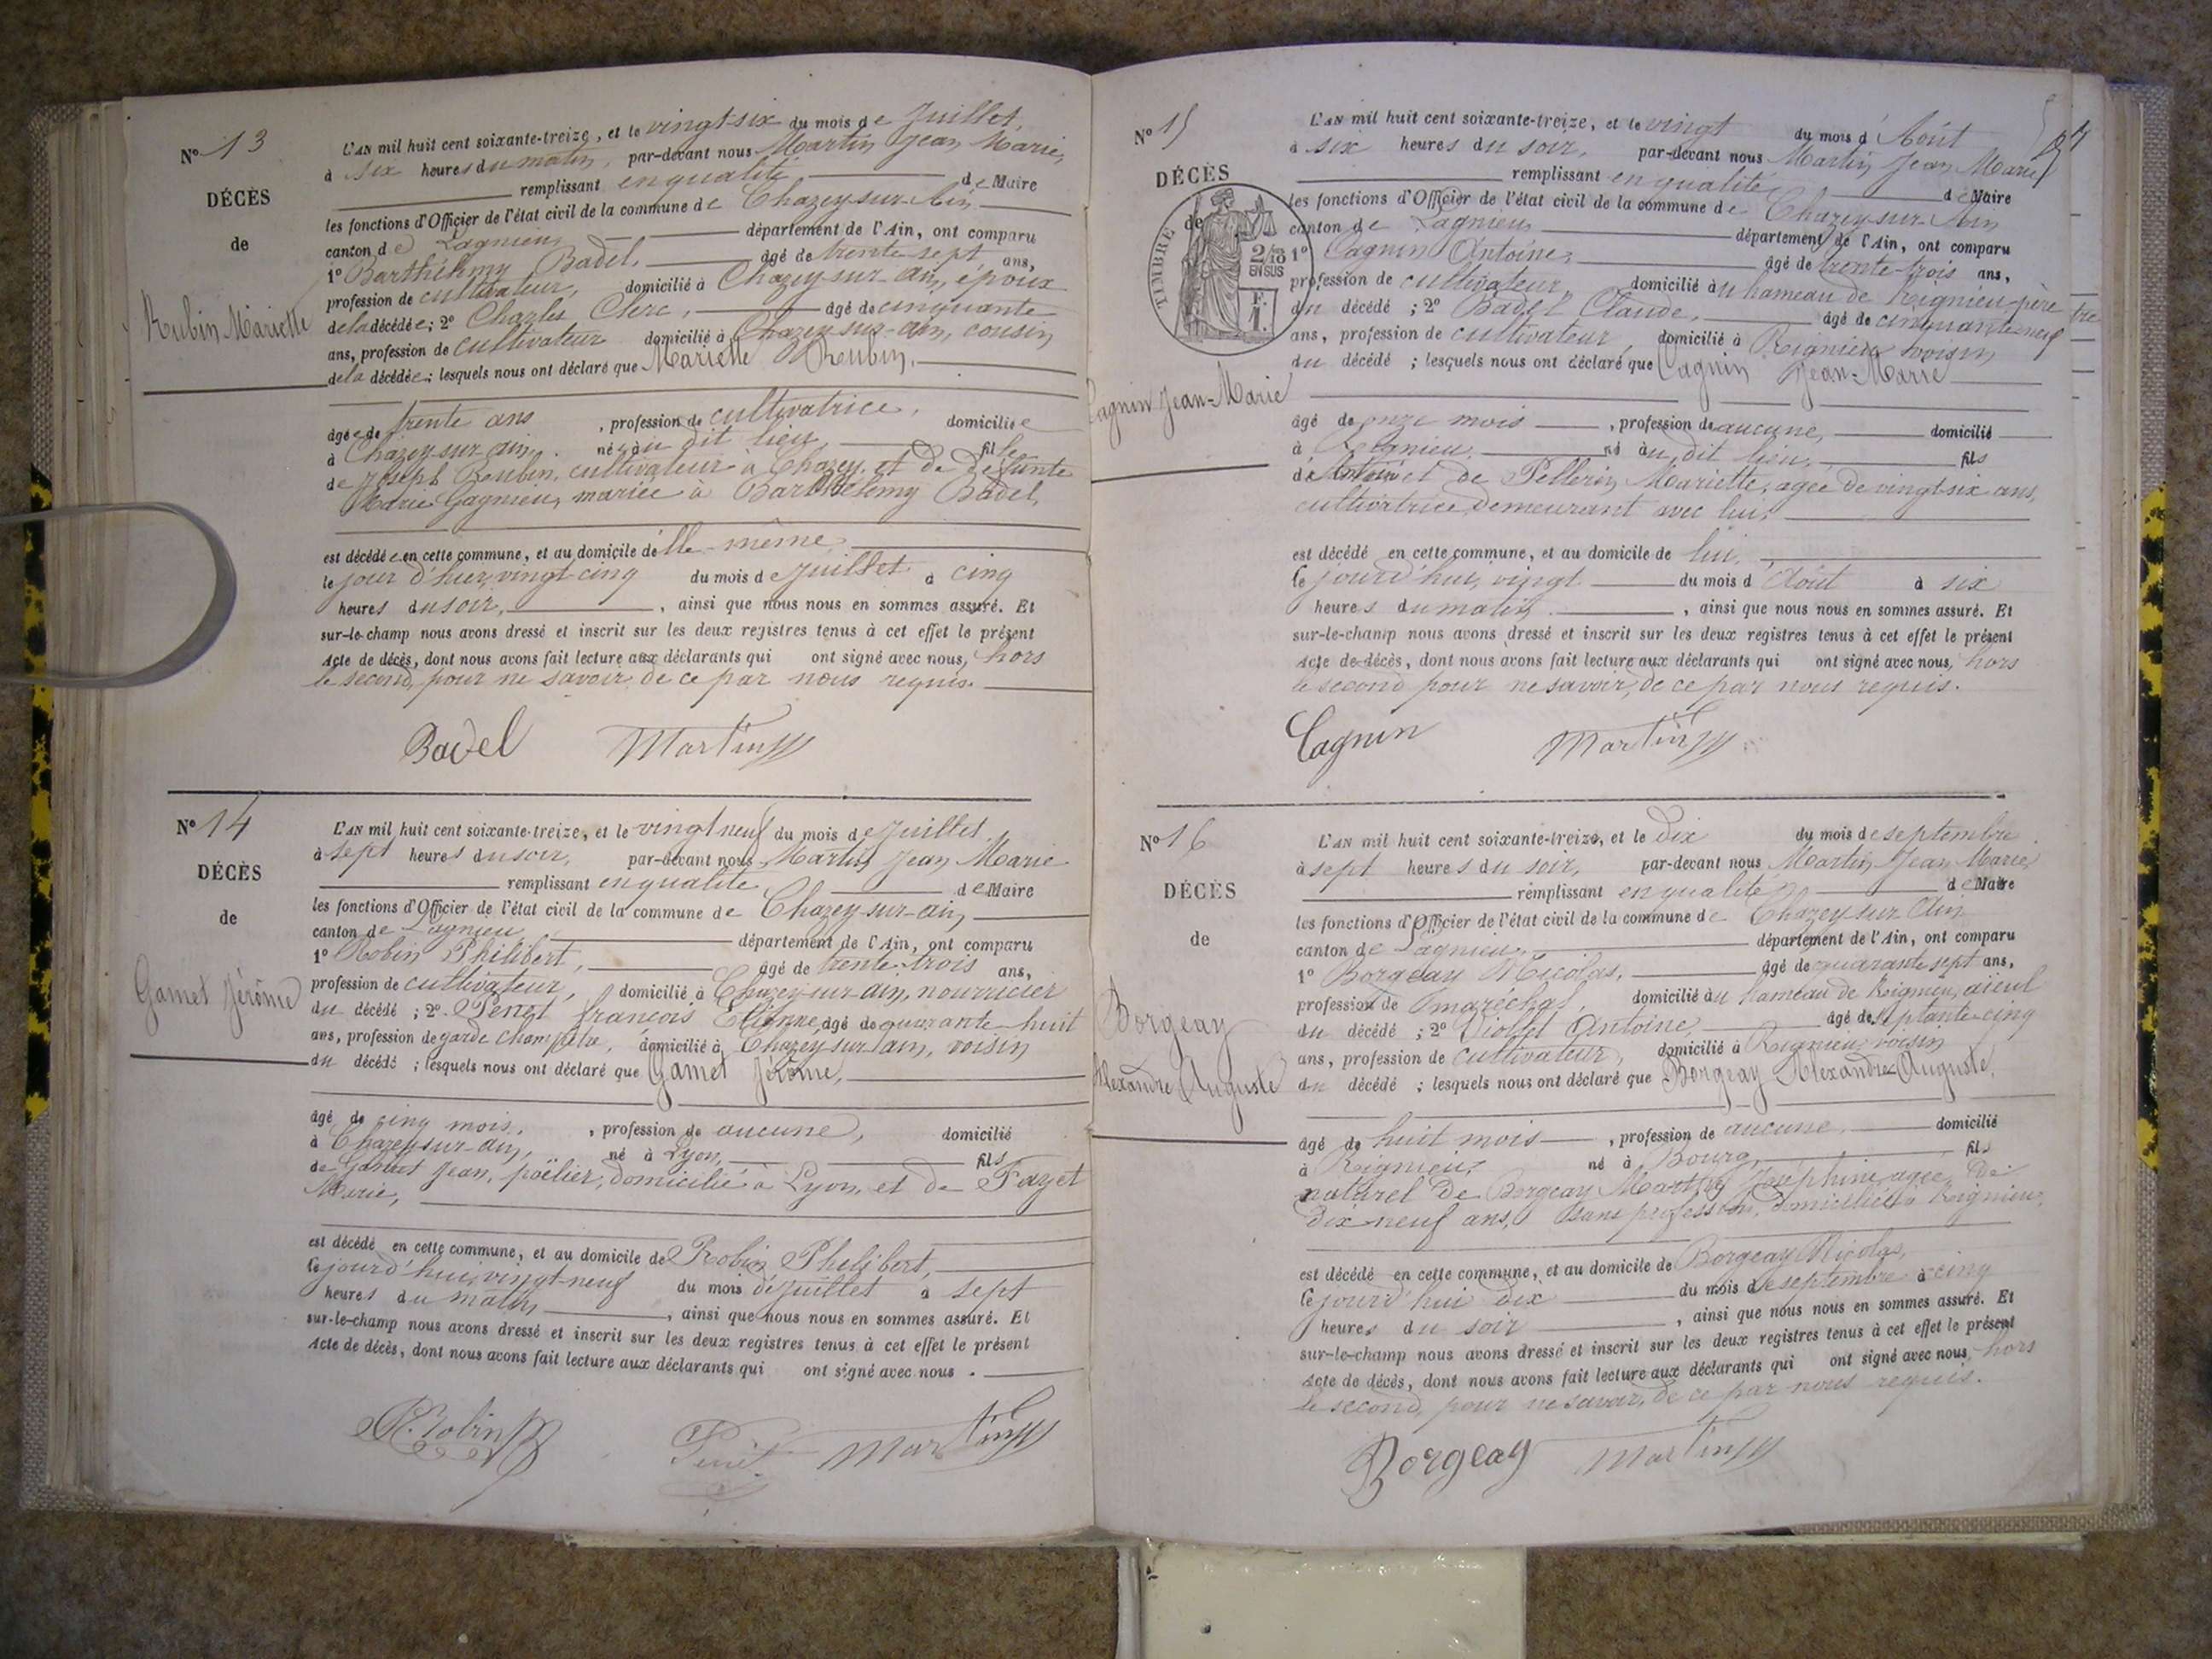 N° 13
DÉCÈS
de
Rubin Mariette
L'AN mil huit cent soixante-treize, et le vingt-six du mois de Juillet,
à six heures du matin, par-devant nous Martin Jean Marie,
remplissant en qualité de Maire
les fonctions d'Officier de l'état civil de la commune de Chazey-sur-Ain
canton de Lagnieu département de l'Ain, ont comparu
1° Barthélemy Badel, âgé de trente sept ans,
profession de cultivateur, domicilié à Chazey-sur-ain, époux
de la décédée; 2° Charles Clerc, âgé de cinquante
ans, profession de cultivateur domicilié à Chazey-sur-ain, cousin
de la décédée; lesquels nous ont déclaré que Mariette Roubin,
âgée de trente ans, profession de cultivatrice, domiciliée
à Chazey-sur-ain. née au dit lieu, fille
de Joseph Roubin, cultivateur à Chazey et de défunte
Marie Gagnieu, mariée à Barthélemy Badel,
est décédée en cette commune, et au domicile d'elle-même
le jour d'hier, vingt cinq du mois de Juillet à cinq
heures du soir, ainsi que nous nous en sommes assuré. Et
sur-le-champ nous avons dressé et inscrit sur les deux registres tenus à cet effet le présent
Acte de décès, dont nous avons fait lecture aux déclarants qui ont signé avec nous, hors
le second, pour ne savoir, de ce par nous requis.
Badel Martin
N° 14
DÉCÈS
de
Gamet Jérôme
L'AN mil huit cent soixante-treize, et le vingt neuf du mois de Juillet
à sept heures du soir, par-devant nous Martin Jean Marie
remplissant en qualité de Maire
les fonctions d'Officier de l'état civil de la commune de Chazey-sur-ain,
canton de Lagnieu département de l'Ain, ont comparu
1° Robin Philibert, âgé de trente-trois ans,
profession de cultivateur, domicilié à Chazey-sur-ain, nourricier
du décédé; 2° Penet françois Etienne, âgé de quarante-huit
ans, profession de garde champêtre, domicilié à Chazey-sur-ain, voisin
du décédé; lesquels nous ont déclaré que Gamet Jérôme,
âgé de cinq mois, profession de aucune, domicilié
à Chazey-sur-ain, né à Lyon, fils
de Gamet Jean, poëlier, domicilié à Lyon, et de Fayet
Marie,
est décédé en cette commune, et au domicile de Robin Philibert,
le jourd'hui, vingt-neuf du mois de Juillet à sept
heures du matin, ainsi que nous nous en sommes assuré. Et
sur-le-champ nous avons dressé et inscrit sur les deux registres tenus à cet effet le présent
Acte de décès, dont nous avons fait lecture aux déclarants qui ont signé avec nous.
Robin Penet Martin
N° 15
DÉCÈS
de
TIMBRE
2/10
EN SUS
F.
1.
Cagnin Jean-Marie
L'AN mil huit cent soixante-treize, et le vingt du mois d'Août
à six heures du soir, par-devant nous Martin Jean Marie
remplissant en qualité de Maire
les fonctions d'Officier de l'état civil de la commune de Chazey-sur-Ain
canton de Lagnieu département de l'Ain, ont comparu
1° Cagnin Antoine, âgé de trente-trois ans,
profession de cultivateur, domicilié au hameau de Rignieu, père
du décédé; 2° Badel Claude, âgé de cinquante-neuf
ans, profession de cultivateur, domicilié à Rignieu, voisin
du décédé; lesquels nous ont déclaré que Cagnin Jean-Marie
âgé de onze mois, profession de aucune, domicilié
à Reignieu, né au dit lieu, fils
d'Antoine et de Pellerin Mariette, agée de vingt-six ans,
cultivatrice, demeurant avec lui,
est décédé en cette commune, et au domicile de lui,
le jourd'hui, vingt du mois d'Août à six
heures du matin, ainsi que nous nous en sommes assuré. Et
sur-le-champ nous avons dressé et inscrit sur les deux registres tenus à cet effet le présent
Acte de décès, dont nous avons fait lecture aux déclarants qui ont signé avec nous, hors
le second pour ne savoir, de ce par nous requis.
Cagnin Martin
N° 16
DÉCÈS
de
Borgeay
Alexandre Auguste
L'AN mil huit cent soixante-treize, et le dix du mois de septembre
à sept heures du soir, par-devant nous Martin Jean Marie
remplissant en qualité de Maire
les fonctions d'Officier de l'état civil de la commune de Chazey-sur-Ain
canton de Lagnieu, département de l'Ain, ont comparu
1° Borgeay Nicolas, âgé de quarante sept ans,
profession de maréchal, domicilié au hameau de Reignieu, aïeul
du décédé; 2° Viollet Antoine, âgé de septante-cinq
ans, profession de cultivateur, domicilié à Rignieu, voisin
du décédé; lesquels nous ont déclaré que Borgeay Alexandre Auguste,
âgé de huit mois, profession de aucune domicilié
à Reignieu, né à Bourg, fils
naturel de Borgeay Marthe Joséphine, agée de
dix-neuf ans, sans profession, domiciliée à Reignieu,
est décédé en cette commune, et au domicile de Borgeay Nicolas,
le jourd'hui dix du mois de septembre à cinq
heures du soir, ainsi que nous nous en sommes assuré. Et
sur-le-champ nous avons dressé et inscrit sur les deux registres tenus à cet effet le présent
Acte de décès, dont nous avons fait lecture aux déclarants qui ont signé avec nous, hors
le second, pour ne savoir, de ce par nous requis.
Borgeay Martin